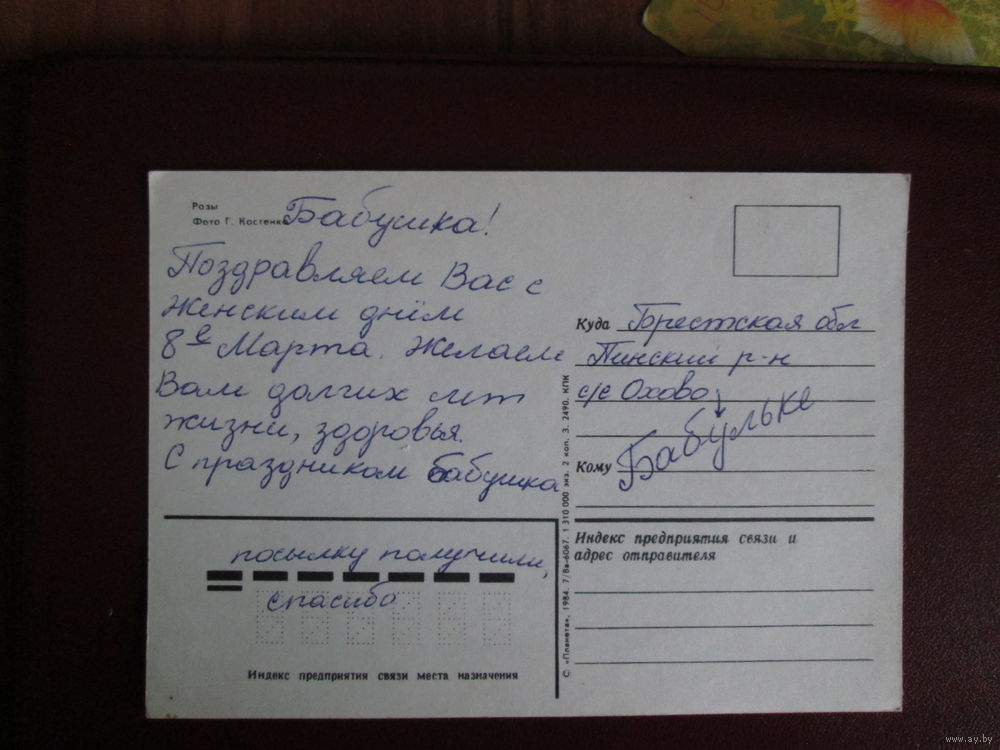 Розы
Фото Г. Костенко
Бабушка!
Поздравляем Вас с
женским днём
8е Марта. Желаем
Вам долгих лет
жизни, здоровья.
С праздником бабушка
посылку получили,
спасибо
Индекс предприятия связи места назначения
© «Планета», 1984. 7/8а-6067. 1 310 000 экз. 2 коп. З. 2490. КПК
Куда Брестская обл
Пинский р-н
с/с Охово
Кому Бабульке
Индекс предприятия связи и
адрес отправителя
www.ay.by